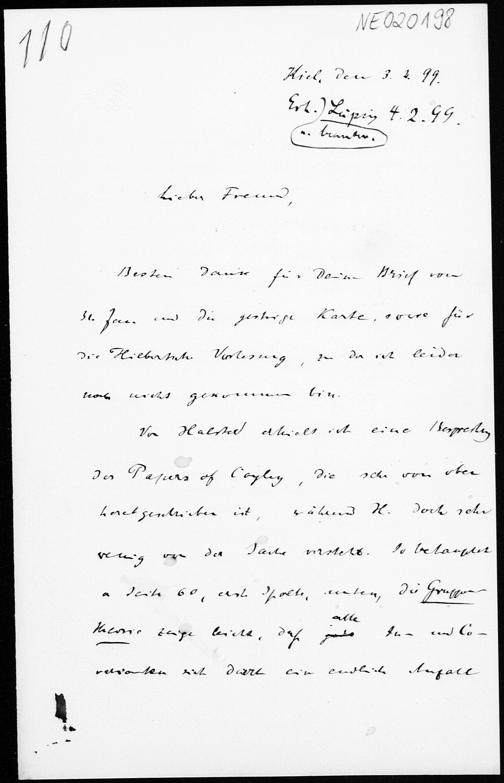 110
NE020198
Kiel, den 3. 2. 99.
Erh.) Leipzig 4.2.99.
u. beantw.
Lieber Freund,
Besten Dank für Deinen Brief vom
31. Jan und die gestrige Karte, sowie für
die Hilbertsche Vorlesung, zu der ich leider
noch nicht gekommen bin.
Von Halsted erhielt ich eine Besprechung
der Papers of Cayley, die sehr von oben
herabgeschrieben ist, während H. doch sehr
wenig von der Sache versteht. So behauptet
er Seite 60, erste Spalte, unten, die Gruppen-
theorie zeige leicht, daß alle In- und Co-
varianten sich durch eine endliche Anzahl